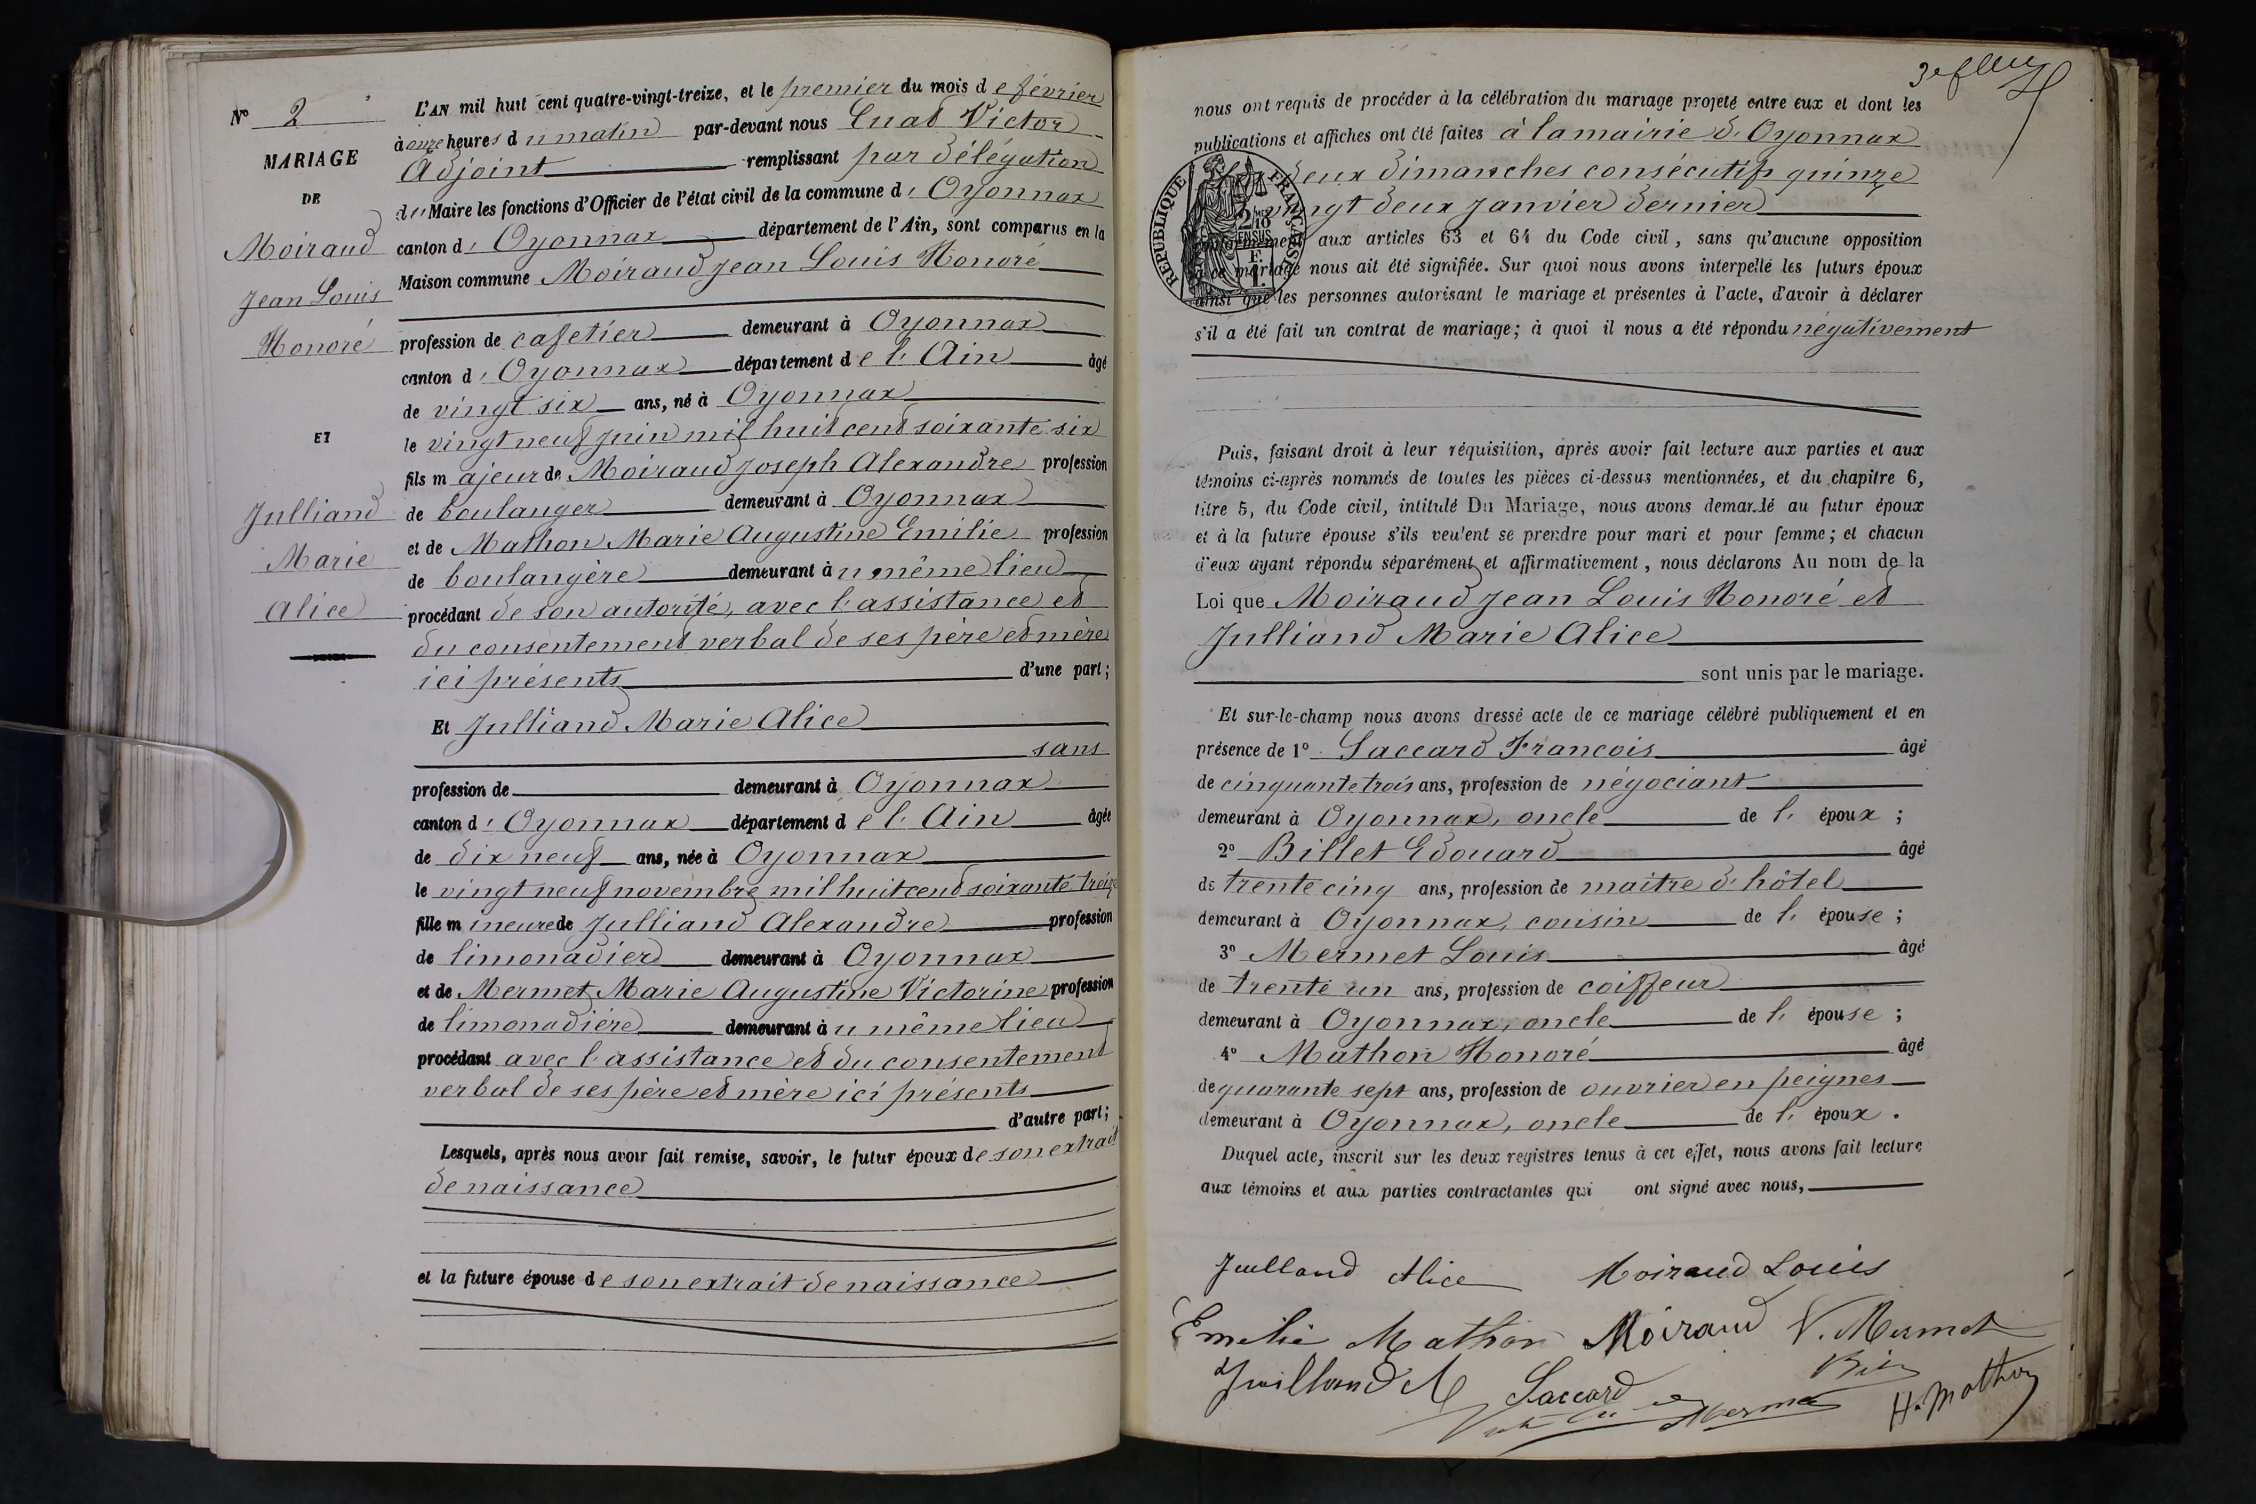 Nº 2
MARIAGE
DE
Moiraud
Jean Louis
Honoré
ET
Julliand
Marie
Alice
L'AN mil huit cent quatre-vingt-treize, et le premier du mois de février
à onze heures du matin par-devant nous Cuat Victor
Adjoint remplissant par délégation
du Maire les fonctions d'Officier de l'état civil de la commune d'Oyonnax
canton d'Oyonnax département de l'Ain, sont comparus en la
Maison commune Moiraud Jean Louis Honoré
profession de cafetier demeurant à Oyonnax
canton d'Oyonnax département de l'Ain âgé
de vingt six ans, né à Oyonnax
le vingt neuf juin mil huit cent soixante six
fils majeur de Moiraud Joseph Alexandre profession
de boulanger demeurant à Oyonnax
et de Mathon Marie Augustine Emilie profession
de boulangère demeurant au même lieu
procédant de son autorité, avec l'assistance et
du consentement verbal de ses père et mère
ici présents d'une part;
Et Julliand Marie Alice
sans
profession de demeurant à Oyonnax
canton d'Oyonnax département de l'Ain âgée
de dix neuf ans, née à Oyonnax
le vingt neuf novembre mil huit cent soixante treize
fille mineure de Julliand Alexandre profession
de limonadier demeurant à Oyonnax
et de Mermet Marie Augustine Victorine profession
de limonadière demeurant au même lieu
procédant avec l'assistance et du consentement
verbal de ses père et mère ici présents
d'autre part;
Lesquels, après nous avoir fait remise, savoir, le futur époux de son extrait
de naissance
et la future épouse de son extrait de naissance
nous ont requis de procéder à la célébration du mariage projeté entre eux et dont les
publications et affiches ont été faites à la mairie d'Oyonnax
deux dimanches consécutifs quinze
vingt deux janvier dernier
RÉPUBLIQUE FRANÇAISE
conformément aux articles 63 et 64 du Code civil, sans qu'aucune opposition
à ce mariage nous ait été signifiée. Sur quoi nous avons interpellé les futurs époux
ainsi que les personnes autorisant le mariage et présentes à l'acte, d'avoir à déclarer
s'il a été fait un contrat de mariage; à quoi il nous a été répondu négativement
Puis, faisant droit à leur réquisition, après avoir fait lecture aux parties et aux
témoins ci-après nommés de toutes les pièces ci-dessus mentionnées, et du chapitre 6,
titre 5, du Code civil, intitulé Du Mariage, nous avons demandé au futur époux
et à la future épouse s'ils veulent se prendre pour mari et pour femme; et chacun
d'eux ayant répondu séparément et affirmativement, nous déclarons Au nom de la
Loi que Moiraud Jean Louis Honoré et
Julliand Marie Alice
sont unis par le mariage.
Et sur-le-champ nous avons dressé acte de ce mariage célébré publiquement et en
présence de 1º Saccard Francois âgé
de cinquante trois ans, profession de négociant
demeurant à Oyonnax, oncle de l'époux;
2º Billet Edouard âgé
de trente cinq ans, profession de maître d'hôtel
demeurant à Oyonnax, cousin de l'épouse;
3º Mermet Louis âgé
de trente un ans, profession de coiffeur
demeurant à Oyonnax, oncle de l'épouse;
4º Mathon Honoré âgé
de quarante sept ans, profession de ouvrier en peignes
demeurant à Oyonnax, oncle de l'époux.
Duquel acte, inscrit sur les deux registres tenus à cet effet, nous avons fait lecture
aux témoins et aux parties contractantes qui ont signé avec nous,
Juilland Alice Moiraud Louis
Emelie Mathon Moiraud V. Mermet
Juilland A Saccard
H. Mathon